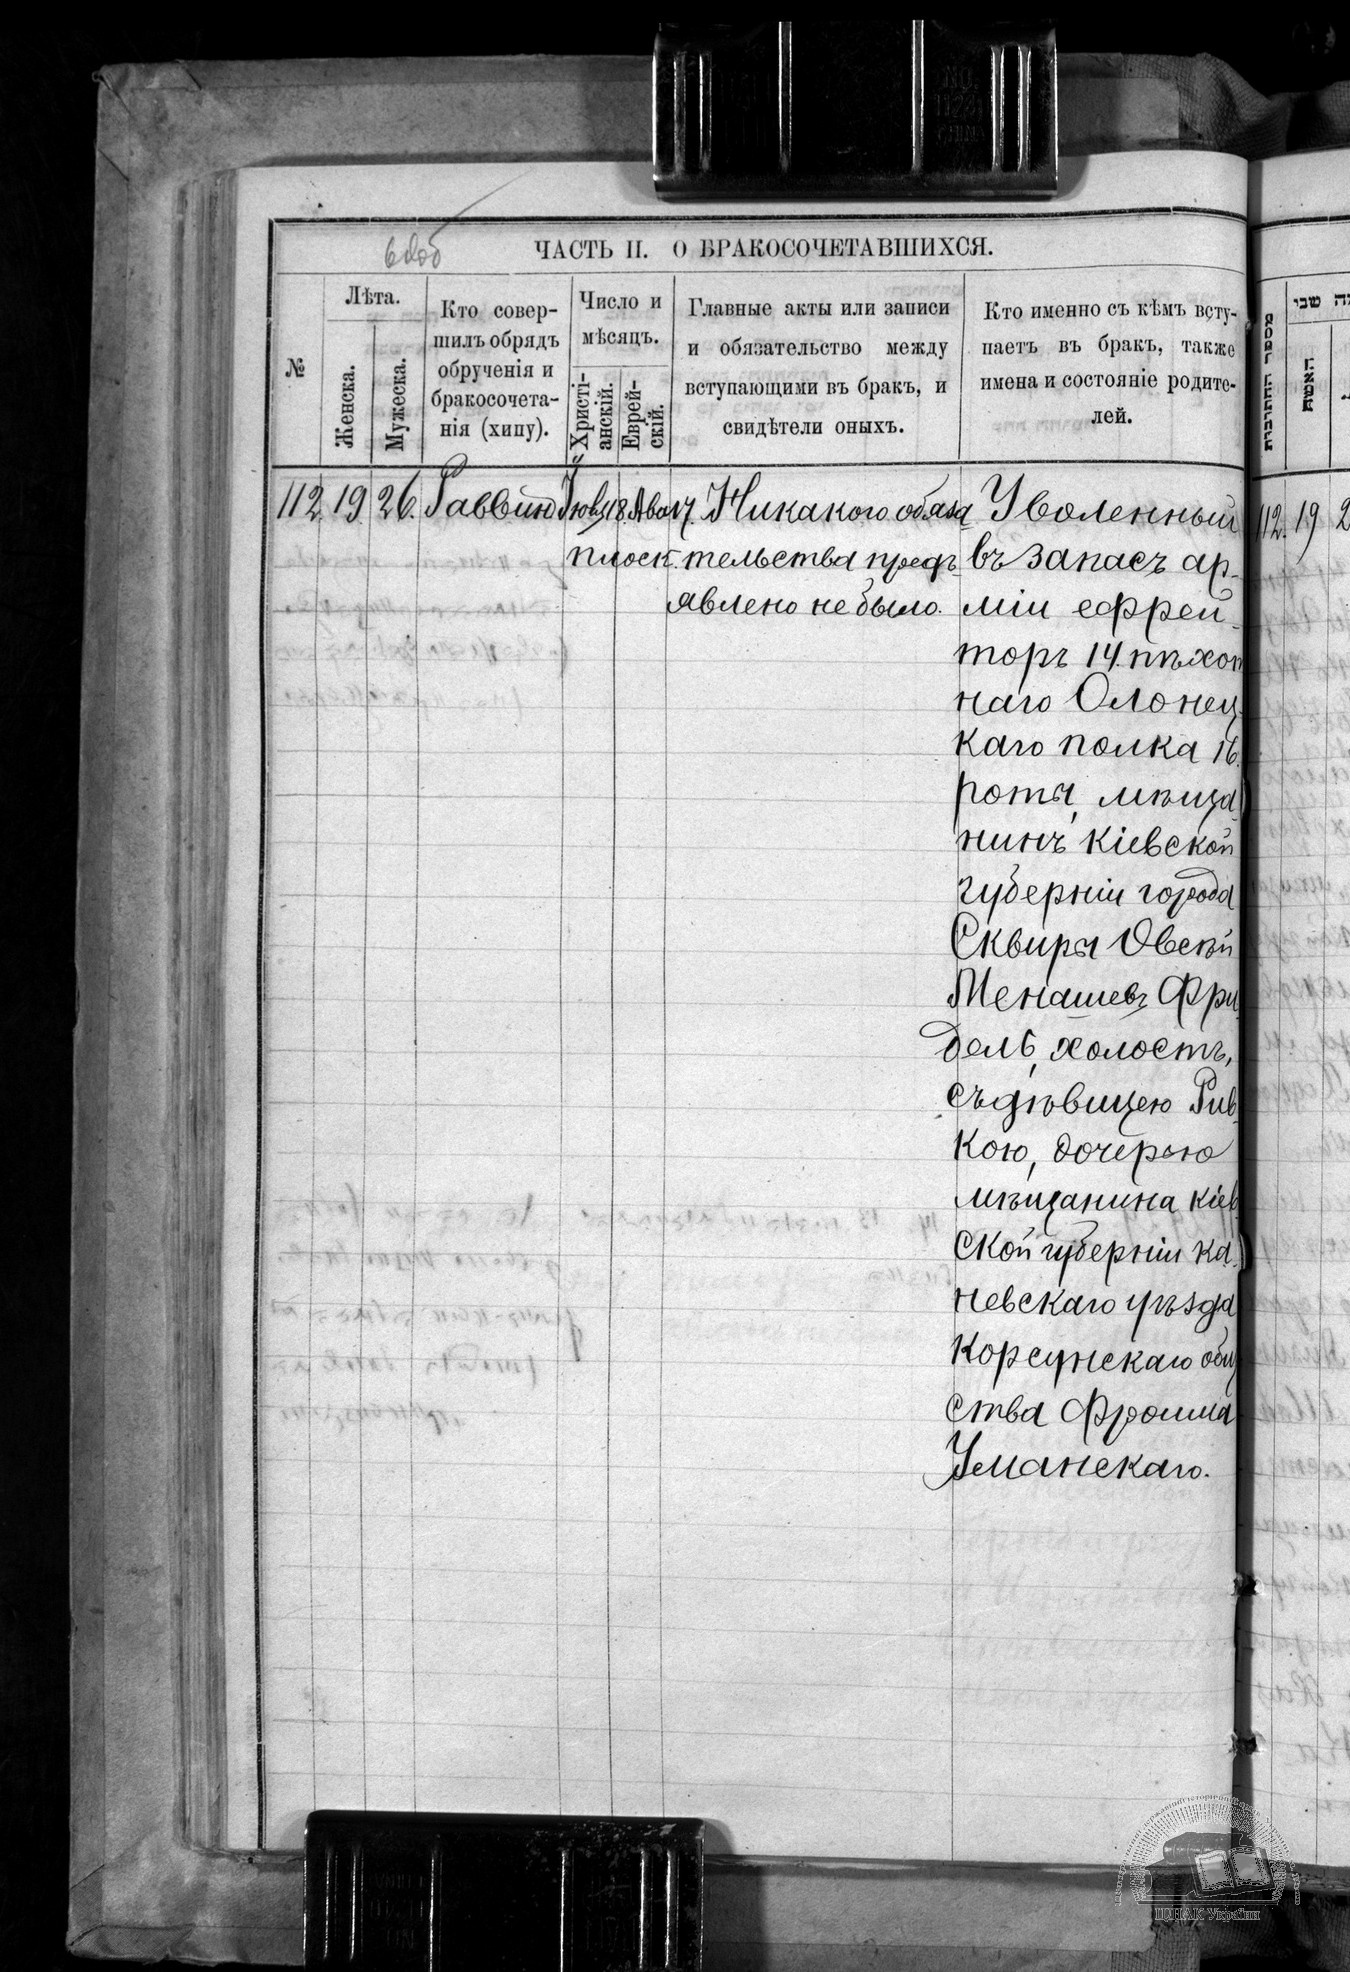 ЧАСТЬ II. О БРАКОСОЧЕТАВШИХСЯ.
№
Лѣта.
Женска.
Мужеска.
Кто совер-
шилъ обрядъ
обрученія и
бракосочета-
нія (хипу).
Число и
мѣсяцъ.
Христі-
анскій.
Еврей-
скій.
Главные акты или записи
и обязательство между
вступающими въ бракъ, и
свидѣтели оныхъ.
Кто именно съ кѣмъ всту-
паетъ въ бракъ, также
имена и состояніе родите-
лей.
112. 19. 26. Раввинъ 18. Никакого обяза
тельства предъ-
явлено не было.
Уволенный
въ запасъ ар-
міи ефрей-
торъ 14. пѣхот
наго Олонец-
каго полка 16.
роты, мѣща-
нинъ Кіевской
губерніи города
Сквиры Овсѣй
Менашевъ Фри-
дель, холостъ,
съ дѣвицею Рив-
кою, дочерью
мѣщанина Кіев-
ской губерніи Ка-
невскаго уѣзда
Корсунскаго общ
ства Фроима
Уманскаго.
מספר החתונות
האשה
112. 19
ЦДІАК України